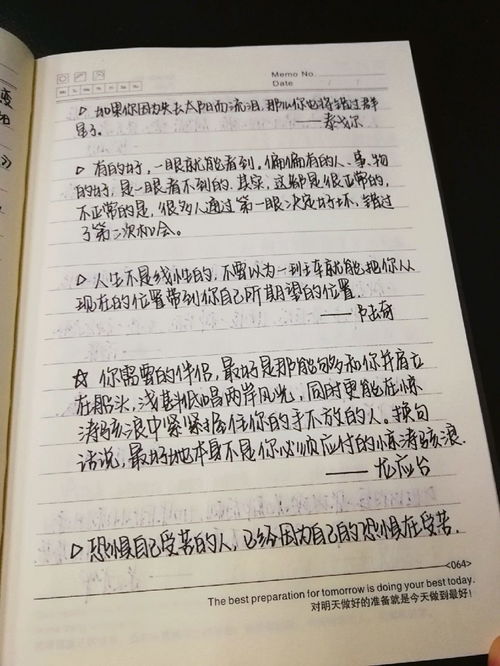 Memo No.
Date
▷ 如果你因为失去太阳而流泪,那么你也将错过群
星了。
——泰戈尔
▷ 有的好,一眼就能看到,偏偏有的人、事、物
的好,是一眼看不到的.其实,这都是很正常的,
不正常的是,很多人通过第一眼决定好坏,错过
了第二次机会。
▷ 人生不是线性的,不要以为一列车就能把你从
现在的位置带到你自己所期望的位置.
——古典
☆ 你需要的伴侣,最好是那能够和你并肩立
在船头,浅斟低唱两岸风光,同时更能在惊
涛骇浪中紧紧握住你的手不放的人。换句
话说,最好她本身不是你必须应付的惊涛骇浪.
——龙应台
▷ 恐惧自己受苦的人,已经因为自己的恐惧在受苦.
<064>
The best preparation for tomorrow is doing your best today.
对明天做好的准备就是今天做到最好!